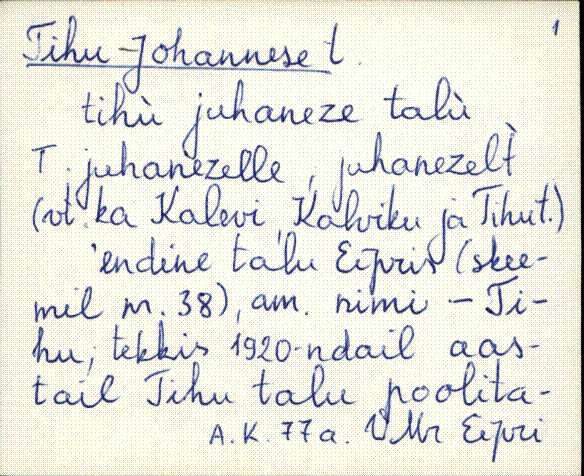 1
Tihu-Johannese t.
tihù juhaneze talù
T. juhanezelle, juhanezelt̀
(vt. ka Kalevi, Kalviku ja Tihu t.)
'endine talu Eipris (skee-
mil nr. 38), am. nimi – Ti-
hu; tekkis 1920-ndail aas-
tail Tihu talu poolita-
A.K. 77a. VMr Eipri